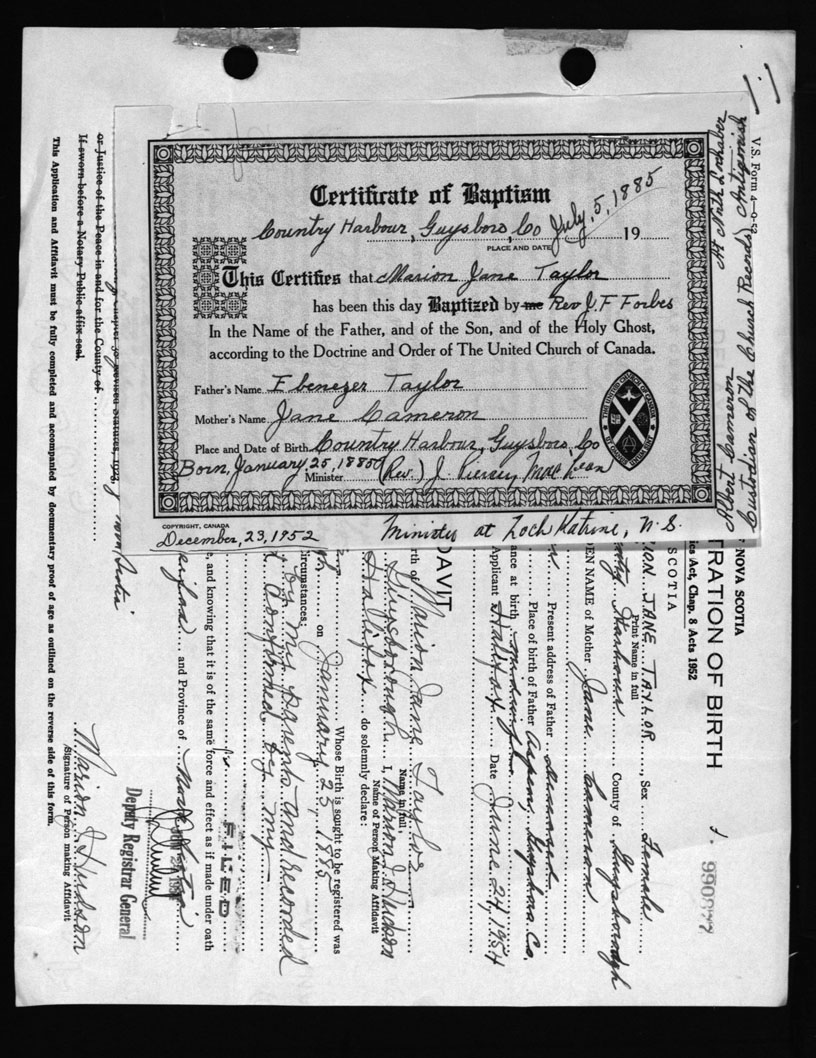 Certificate of Baptism
Country Harbour, Guysboro, Co July, 5, 1885 19
PLACE AND DATE
This Certifies that Marion Jane Taylor
has been this day Baptized by me Rev J. F Forbes
In the Name of the Father, and of the Son, and of the Holy Ghost,
according to the Doctrine and Order of The United Church of Canada.
Father's Name Ebenezer Taylor
Mother's Name Jane Cameron
Place and Date of Birth Country Harbour, Guysboro, Co
Born, January 25, 1885
Minister (Rev.) J. Piercey MacLean
COPYRIGHT, CANADA
December, 23, 1952 Minister at Loch Katrine, N. S.
At North Lochaber
Antigonish
Albert Cameron
Custodian of The Church Records
V.S. Form 4
NOVA SCOTIA
TRATION OF BIRTH
990877
ics Act, Chap. 8 Acts 1952
SCOTIA
ION JANE TAYLOR, Sex Female
Print Name in full
Harbour County of Guysborough
EN NAME of Mother Jane Cameron
Present address of Father deceased
Place of birth of Father Aspen, Guysboro Co.
ance at birth midwife
Applicant Halifax Date June 24, 1954
DAVIT
rth of Marion Jane Taylor
Name in full
Guysborough I, Marion J. Hudson
Name of Person Making Affidavit
Halifax do solemnly declare:
Whose Birth is sought to be registered was
on January 25, 1885
ircumstances:
by my parents and recorded
confirmed by my
FILED
e, and knowing that it is of the same force and effect as if made under oath
and Province of Nova Scotia
Deputy Registrar General
Marion J. Hudson
Signature of Person making Affidavit
Nova Scotia
or Justice of the Peace in and for the County of
If sworn before a Notary Public affix seal.
This Application and Affidavit must be fully completed and accompanied by documentary proof of age as outlined on the reverse side of this form.